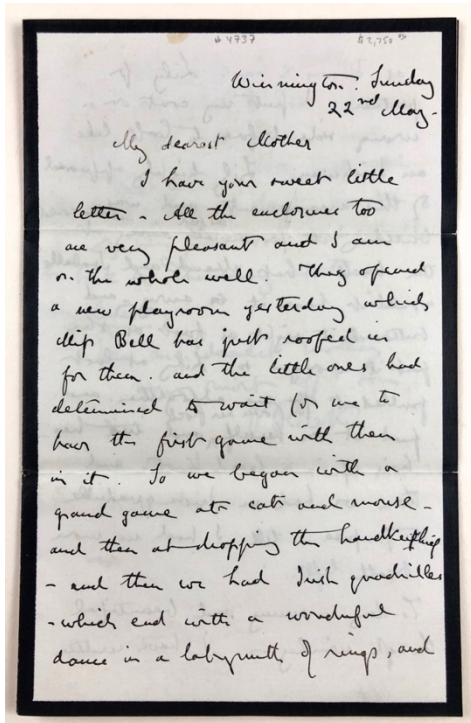 # 4737 $2,750 00
Winnington. Sunday
22nd May.
My dearest Mother
I have your sweet little
letter - All the enclosures too
are very pleasant and I am
on the whole well. They opened
a new playroom yesterday which
Miss Bell has just roofed in
for them. and the little ones had
determined to wait for me to
have the first game with them
in it. So we began with a
grand game at cats and mouse -
and then at dropping the handkerchief
- and then we had Irish quadrilles
- which end with a wonderful
dance in a labyrinth of rings, and